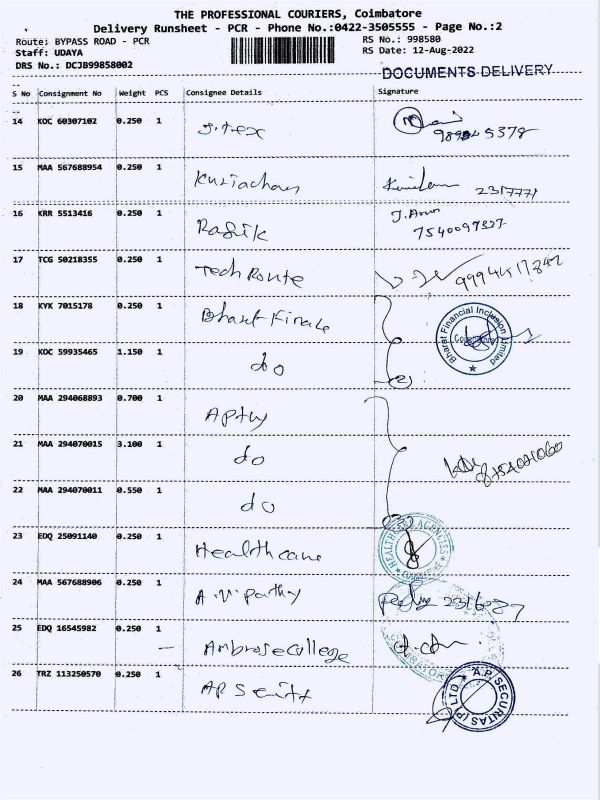 THE PROFESSIONAL COURIERS, Coimbatore
Delivery Runsheet - PCR - Phone No.:0422-3505555 - Page No.:2
Route: BYPASS ROAD - PCR RS No.: 998580
Staff: UDAYA RS Date: 12-Aug-2022
DRS No.: DCJB99858002
DOCUMENTS DELIVERY
S No Consignment No Weight PCS Consignee Details Signature
14 KOC 60307102 0.250 1
15 MAA 567688954 0.250 1 Kuriachan 2317771
16 KRR 5513416 0.250 1 Rafik J. Arun
7540097337
17 TCG 50218355 0.250 1 Tech Route
18 KYK 7015178 0.250 1 Bharat Finance
Bharat Financial Inclusion Limited
19 KOC 59935465 1.150 1 do (2)
20 MAA 294068893 0.700 1
21 MAA 294070015 3.100 1 do
22 MAA 294070011 0.550 1 do (3)
23 EDQ 25091140 0.250 1 Healthcare
24 MAA 567688906 0.250 1 A.V. Parthy
25 EDQ 16545982 0.250 1 Ambrose College
26 TRZ 113250570 0.250 1
A.P. SECURITAS (P) LTD